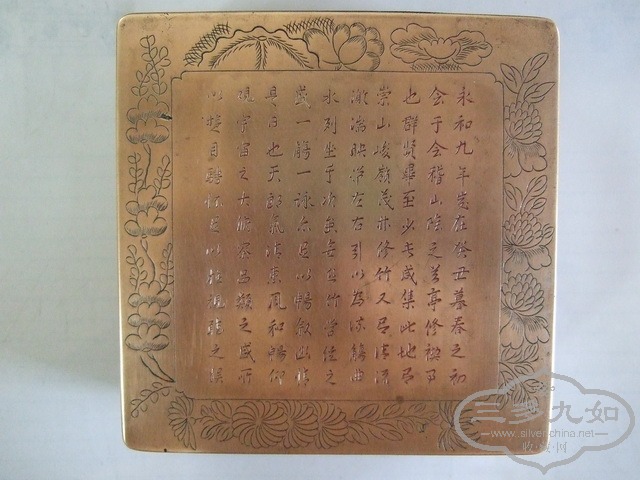 永和九年歲在癸丑暮春之初
会于会稽山陰之兰亭修禊事
也群賢畢至少长咸集此地有
崇山峻嶺茂林修竹又有清流
激湍映带左右引以为流觴曲
水列坐于次虽無丝竹管弦之
盛一觴一詠亦足以暢叙幽情
是日也天朗氣清惠風和暢仰
观宇宙之大俯察品類之盛所
以游目騁怀足以極視聽之娱
三多九如
www.silver-china.net
收·藏·网